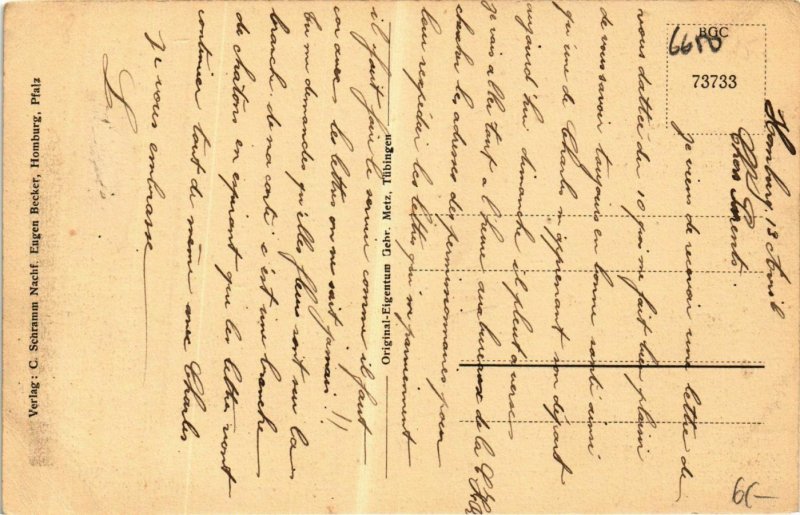 Homburg, 13 Avril
Chers Parents
je viens de recevoir une lettre de
vous datée du 10 qui me fait bien plaisir
de vous savoir toujours en bonne santé ainsi
qu'une de Charles m'apprenant son départ
aujourd'hui dimanche il pleut averse
je vais aller tout à l'heure au bureau de la
chercher les adresses des permissionnaires pour
leur expédier les lettres qui m'parviennent
il faut faire le service comme il faut
car avec les lettres on ne sait jamais !!
tu me demandes qu'elles fleurs sont sur la
branche de ma carte c'est une branche
de chatons en espérant que les lettres vont
continuer tout de même avec Charles
je vous embrasse
L
BGC
73733
6610
6.-
Original-Eigentum Gebr. Metz, Tübingen
Verlag: C. Schramm Nachf. Eugen Becker, Homburg, Pfalz